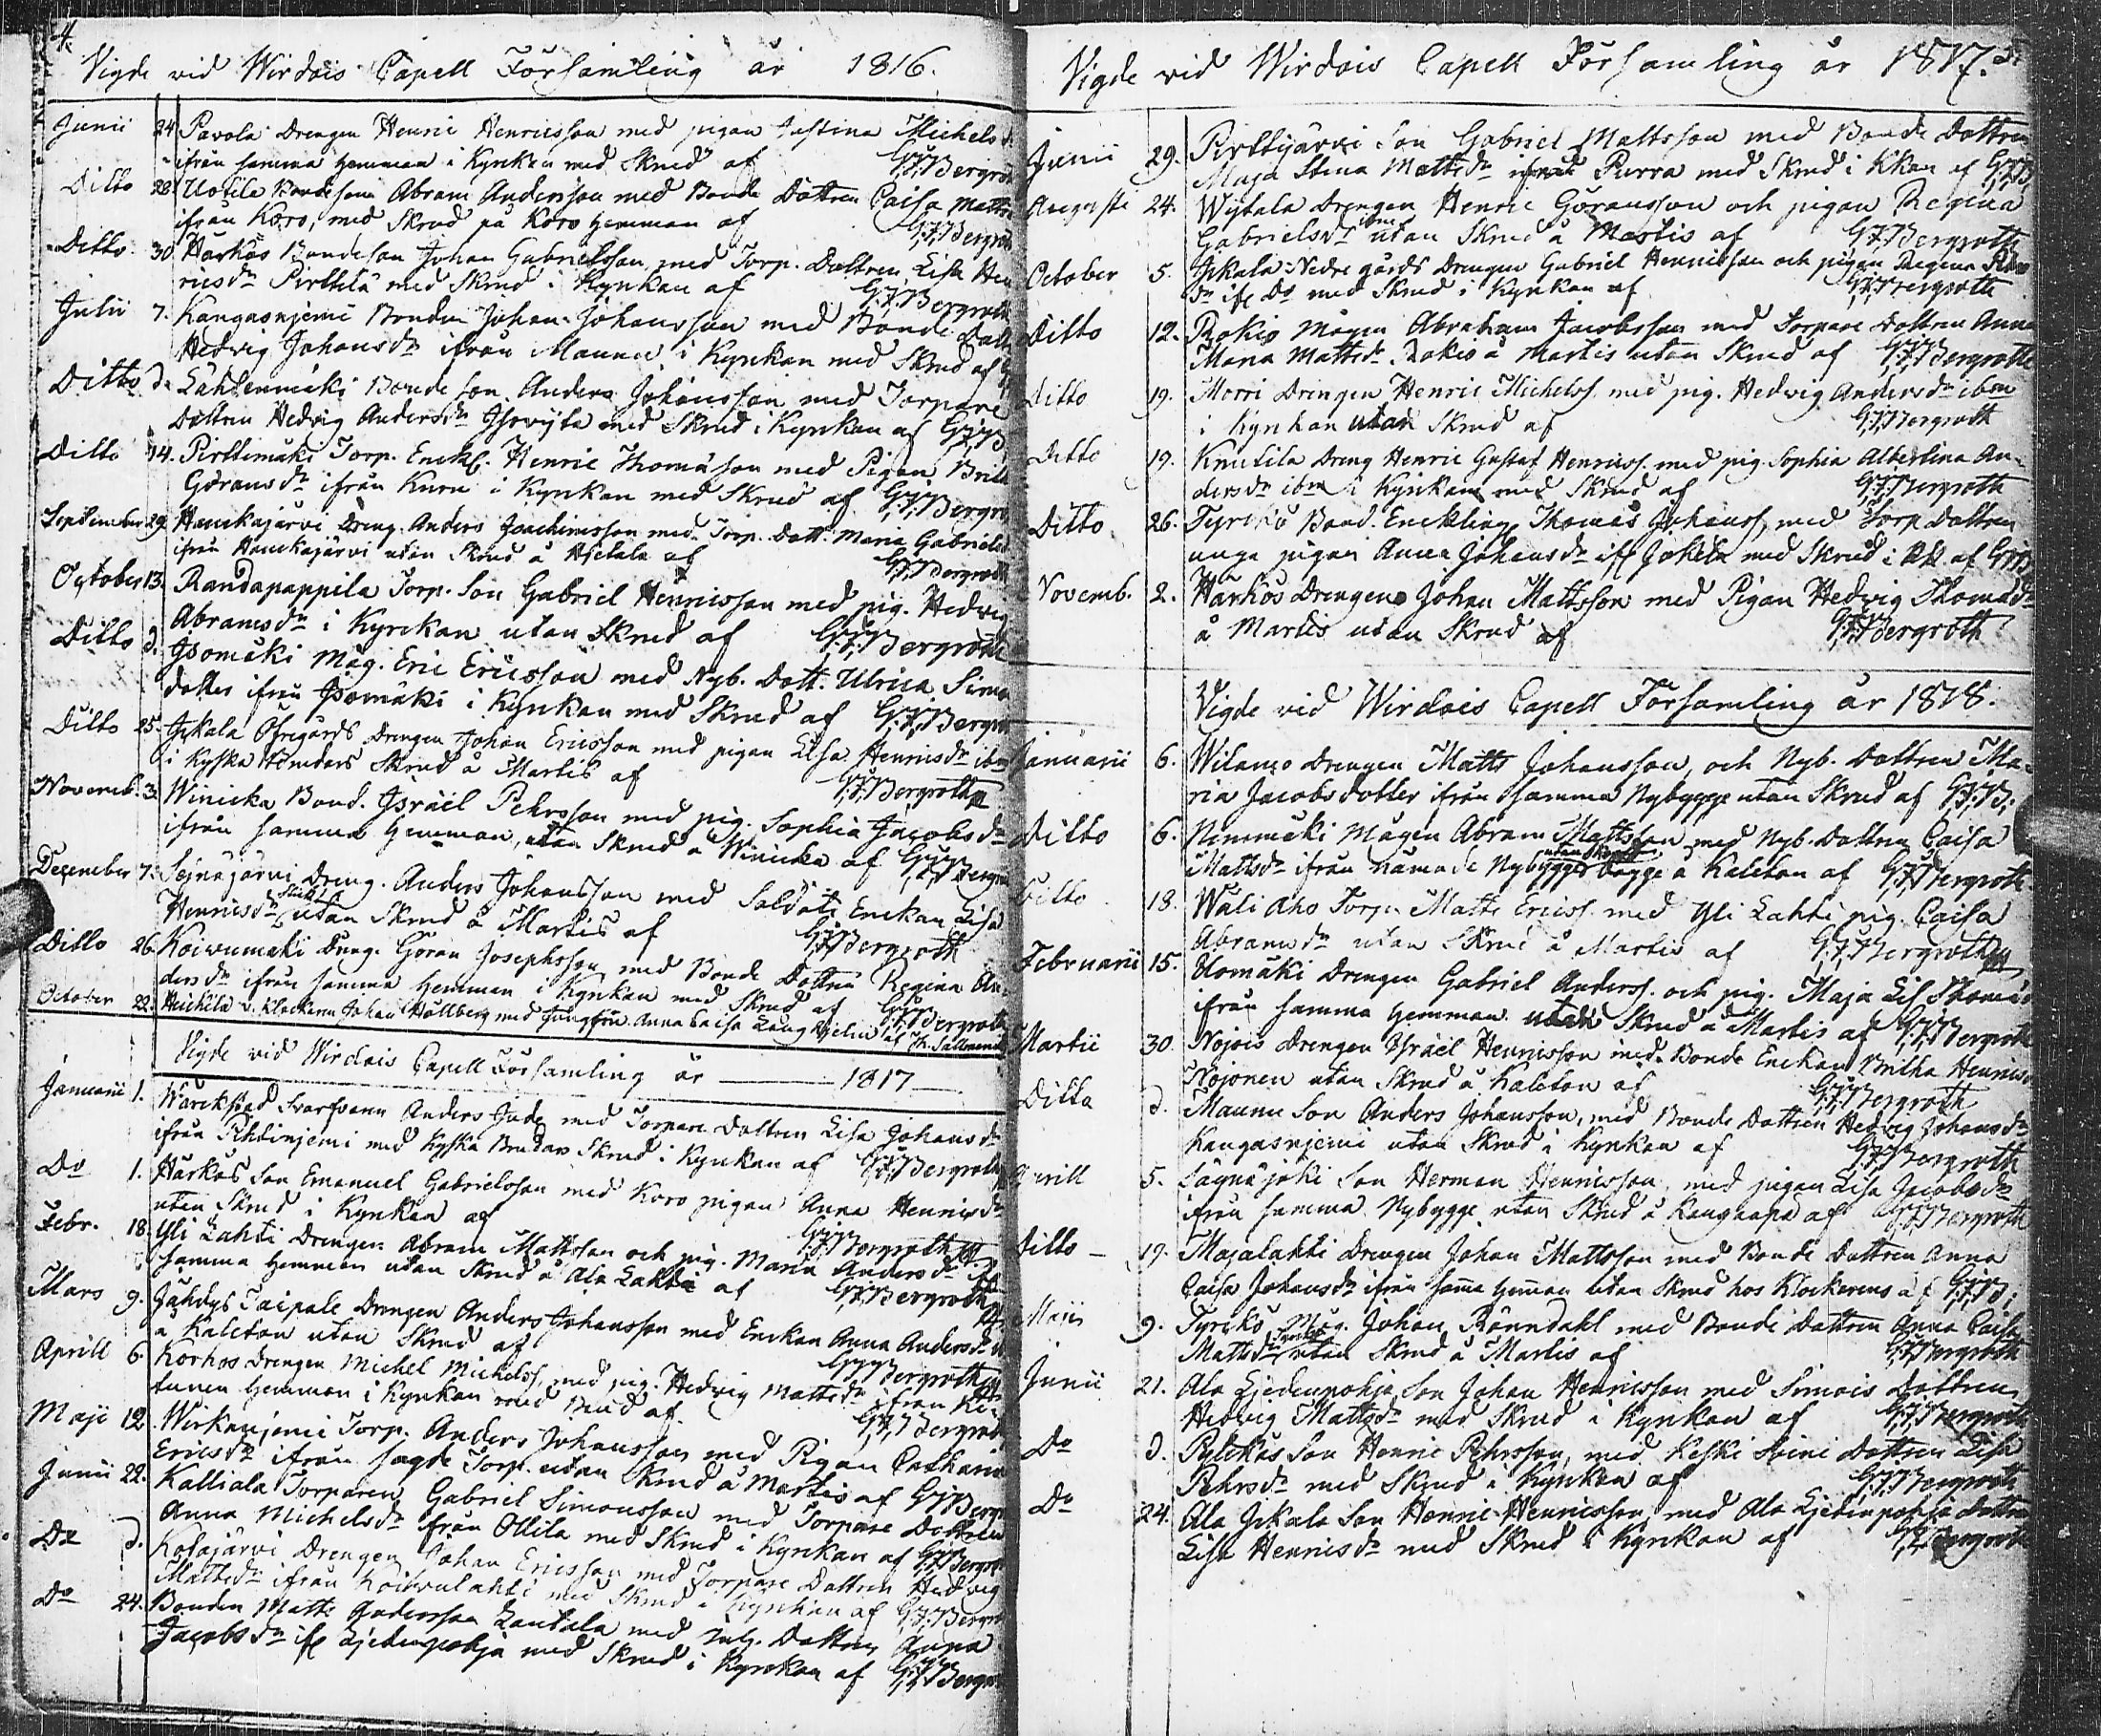 4.
Vigde vid Wirdois Capell Församling år 1816.
Junii 24 Pavola Drengen Henric Henricsson med pigan Justina Michelsdr
ifrån samma hemman i Kyrkan med Skrud af G:J:Bergroth
Ditto 28 Uotila Bondeson Abram Andersson med Bonde Dottren Caisa Matts
ifrån Koro, med Skrud på Koro hemman af G:J:Bergroth
Ditto 30 Härkös Bondeson Johan Gabrielsson med Torp. Dottren Lisa Hen
ricsdr Pirttilä med Skrud i Kyrkan af G:J:Bergroth
Julii 7. Kangasnjemi Bonden Johan Johansson med Bonde Dott
Hedvig Johansdr ifrån Maunu i Kyrkan med Skrud af
Ditto d. Lähdenmäki Bonde son Anders Johansson med Torpare
Dottren Hedvig Andersdr med Skrud i Kyrkan af G:J:B
Ditto 14. Pirttimäki Torp. Enckl. Henric Thomasson med Pigan Brita
Göransdr ifrån Kuru i Kyrkan med Skrud af G:J:Bergro
September 29. Hauckajärvi Dreng. Anders Joachimsson med Torp. Dott. Maria Gabriels
ifrån Hauckajärvi utan Skrud å af G:J:Bergroth
October 13. Randapappila Torp. Son Gabriel Henricsson med pig. Hedvig
Abramsdr i Kyrckan utan Skrud af G:J:Bergroth
Ditto d. Isomäki Måg. Eric Ericsson med Nyb. Dott. Ulrica Simo
dotter ifrån Isomäki i Kyrkan med Skrud af G:J:Bergro
Ditto 25. Jckala Öfregårds Drengen Johan Ericsson med pigan Lisa Henricsdr ibm
i Kyska Skrud å Martis af G:J:Bergroth
Novemb. 3. Winicka Bond. Israël Pehrsson med pig. Sophia Jacobsdr
ifrån samma hemman, utan Skrud å Winicka af G:J:Bergro
December 7. Seinäjärvi Dreng. Anders Johansson med Soldats Enckan Lisa
Henricsdr utan Skrud å Martis af G:J:Bergroth
Ditto 26. Koivumäki Dreng. Göran Josephsson med Bonde Dottren Regina An
dersdr ifrån samma hemman i Kyrkan med Skrud af G:J:Bergroth
October 22. Heickilä v. Klockaren Johan Hällberg med Jungfru Anna Caisa af
Vigde vid Wirdois Capell Församling år 1817
Januarii 1. Svarfvaren Anders med Torpare Dottren Lisa Johansdr
ifrån med Kyska Brudars Skrud i Kyrkan af G:J:Bergroth
Do 1. Härkös Son Emanuel Gabrielsson med Koro pigan Anna Henricsdr
utan Skrud i Kyrkan af G:J:Bergroth
Febr. 18. Yli Lahti Drengen Abram Mattsson och pig. Maria Andersdr
samma hemman utan Skrud å Ala Lahti af G:J:Bergroth
Mars 9. Jähdys Taipale Drengen Anders Johansson med Enckan Anna Andersdr
å Kaleton utan Skrud af G:J:Bergroth
Aprill 6. Korhos Drengen Michel Michelss. med pig. Hedvig Mattsdr ifrån
hemman i Kyrkan med Brud af G:J:Bergroth
Maji 12. Wirkanjemi Torp. Anders Johansson med Pigan Catharina
Ericsdr ifrån sagde Torp. utan Skrud å Martis af G:J:Bergr
Junii 22. Kalliala Torparen Gabriel Simonsson med Torpare Dottren
Anna Michelsdr ifrån Ollila med Skrud i Kyrkan af G:J:Bergro
Do d. Kotajärvi Drengen Johan Ericsson med Torpare Dottren Hedvig
Mattsdr ifrån Koivulahti med Skrud i Kyrkan af G:J:Bergro
Do 24. Bonden Matts Andersson Lautala med Dottren Anna
Jacobsdr ifr Ljedenpohja med Skrud i Kyrkan af G:J:Bergro
Vigde vid Wirdois Capell Församling år 1817.
Junii 29. Pirttijärvi Son Gabriel Mattsson med Bonde Dottren
Maja Stina Mattsdr ifrån Purra med Skrud i Kkan af G:J:B
Augusti 24. Drengen Henric Göransson och pigan Regina
Gabrielsdr ibm utan Skrud å Martis af G:J:Bergroth
October 5. Jckala Nedregårds Drengen Gabriel Henricsson och pigan Regina
dr ifr Do med Skrud i Kyrkan af G:J:Bergroth
Ditto 12. Rokio mågen Abraham Jacobsson med Torpare Dottren Anna
Maria Mattsdr Rokio å Martis utan Skrud af G:J:Bergroth
Ditto 19. Morri Drengen Henric Michelss. med pig. Hedvig Andersdr ibm
i Kyrkan utan Skrud af G:J:Bergroth
Ditto 19. Knutila Dreng Henric Gustaf Henricss. med pig. Sophia Albertina An
dersdr ibm i Kyrkan med Skrud af G:J:Bergroth
Ditto 26. Tyrckö Bond. Enckling Thomas Johanss. med Torp Dottren
unga pigan Anna Johansdr ifr Jokela med Skrud i Kk af G:J:B
Novemb. 2. Härkös Drengen Johan Mattsson med Pigan Hedvig Thomædr
å Martis utan Skrud af G:J:Bergroth
Vigde vid Wirdois Capell Församling år 1818.
Januarii 6. Drengen Matts Johansson, och Nyb. Dottren Ma
ria Jacobsdotter ifrån samma Nybygge utan Skrud af G:J:B:
Ditto 6. Mågen Abram Mattsson med Nyb. Dottren Caisa
Mattsdr ifrån nämnde Nybygge utan Skrud å Kaleton af G:J:Bergroth
Ditto 18. Wäli Aho Torp. Matts Ericss. med Yli Lahti pig. Caisa
Abramsdr utan Skrud å Martis af G:J:Bergroth
Februarii 15. Drengen Gabriel Anderss. och pig. Maja Lis. Thomæ
ifrån samma hemman utan Skrud å Martis af G:J:Bergroth
Martii 30. Nojois Drengen Israël Henricsson med Bonde Enckan Britha Henrics
Nojonen utan Skrud å Kaleton af G:J:Bergroth
Ditto d. Maunu Son Anders Johansson, med Bonde Dottren Hedvig Johansdr
Kangasnjemi utan Skrud i Kyrkan af G:J:Bergroth
Aprill 5. Son Herman Henricsson med pigan Lisa Jacobsdr
ifrån samma Nybygge utan Skrud å af G:J:Bergroth
Ditto 19. Majalahti Drengen Johan Mattsson med Bonde Dottren Anna
Caisa Johansdr ifrån sama heman utan Skrud hos Klockarens af G:J:B:
Maji 9. Tyrckö Måg. Johan Rönndahl med Bonde Dottren Anna Caisa
Mattsdr utan Skrud å Martis af G:J:Bergroth
Junii 21. Ala Ljedenpohja Son Johan Henricsson med Simois Dottren
Hedvig Mattsdr med Skrud i Kyrkan af G:J:Bergroth
Do d. Pylckäs Son Henric Pehrsson, med Keski Dottren Lisa
Pehrsdr med Skrud i Kyrkan af G:J:Bergroth
Do 24. Ala Jckala Son Henric Henricsson, med Ala Ljedenpohja Dottren
Lisa Henricsdr med Skrud i Kyrkan af G:J:Bergroth